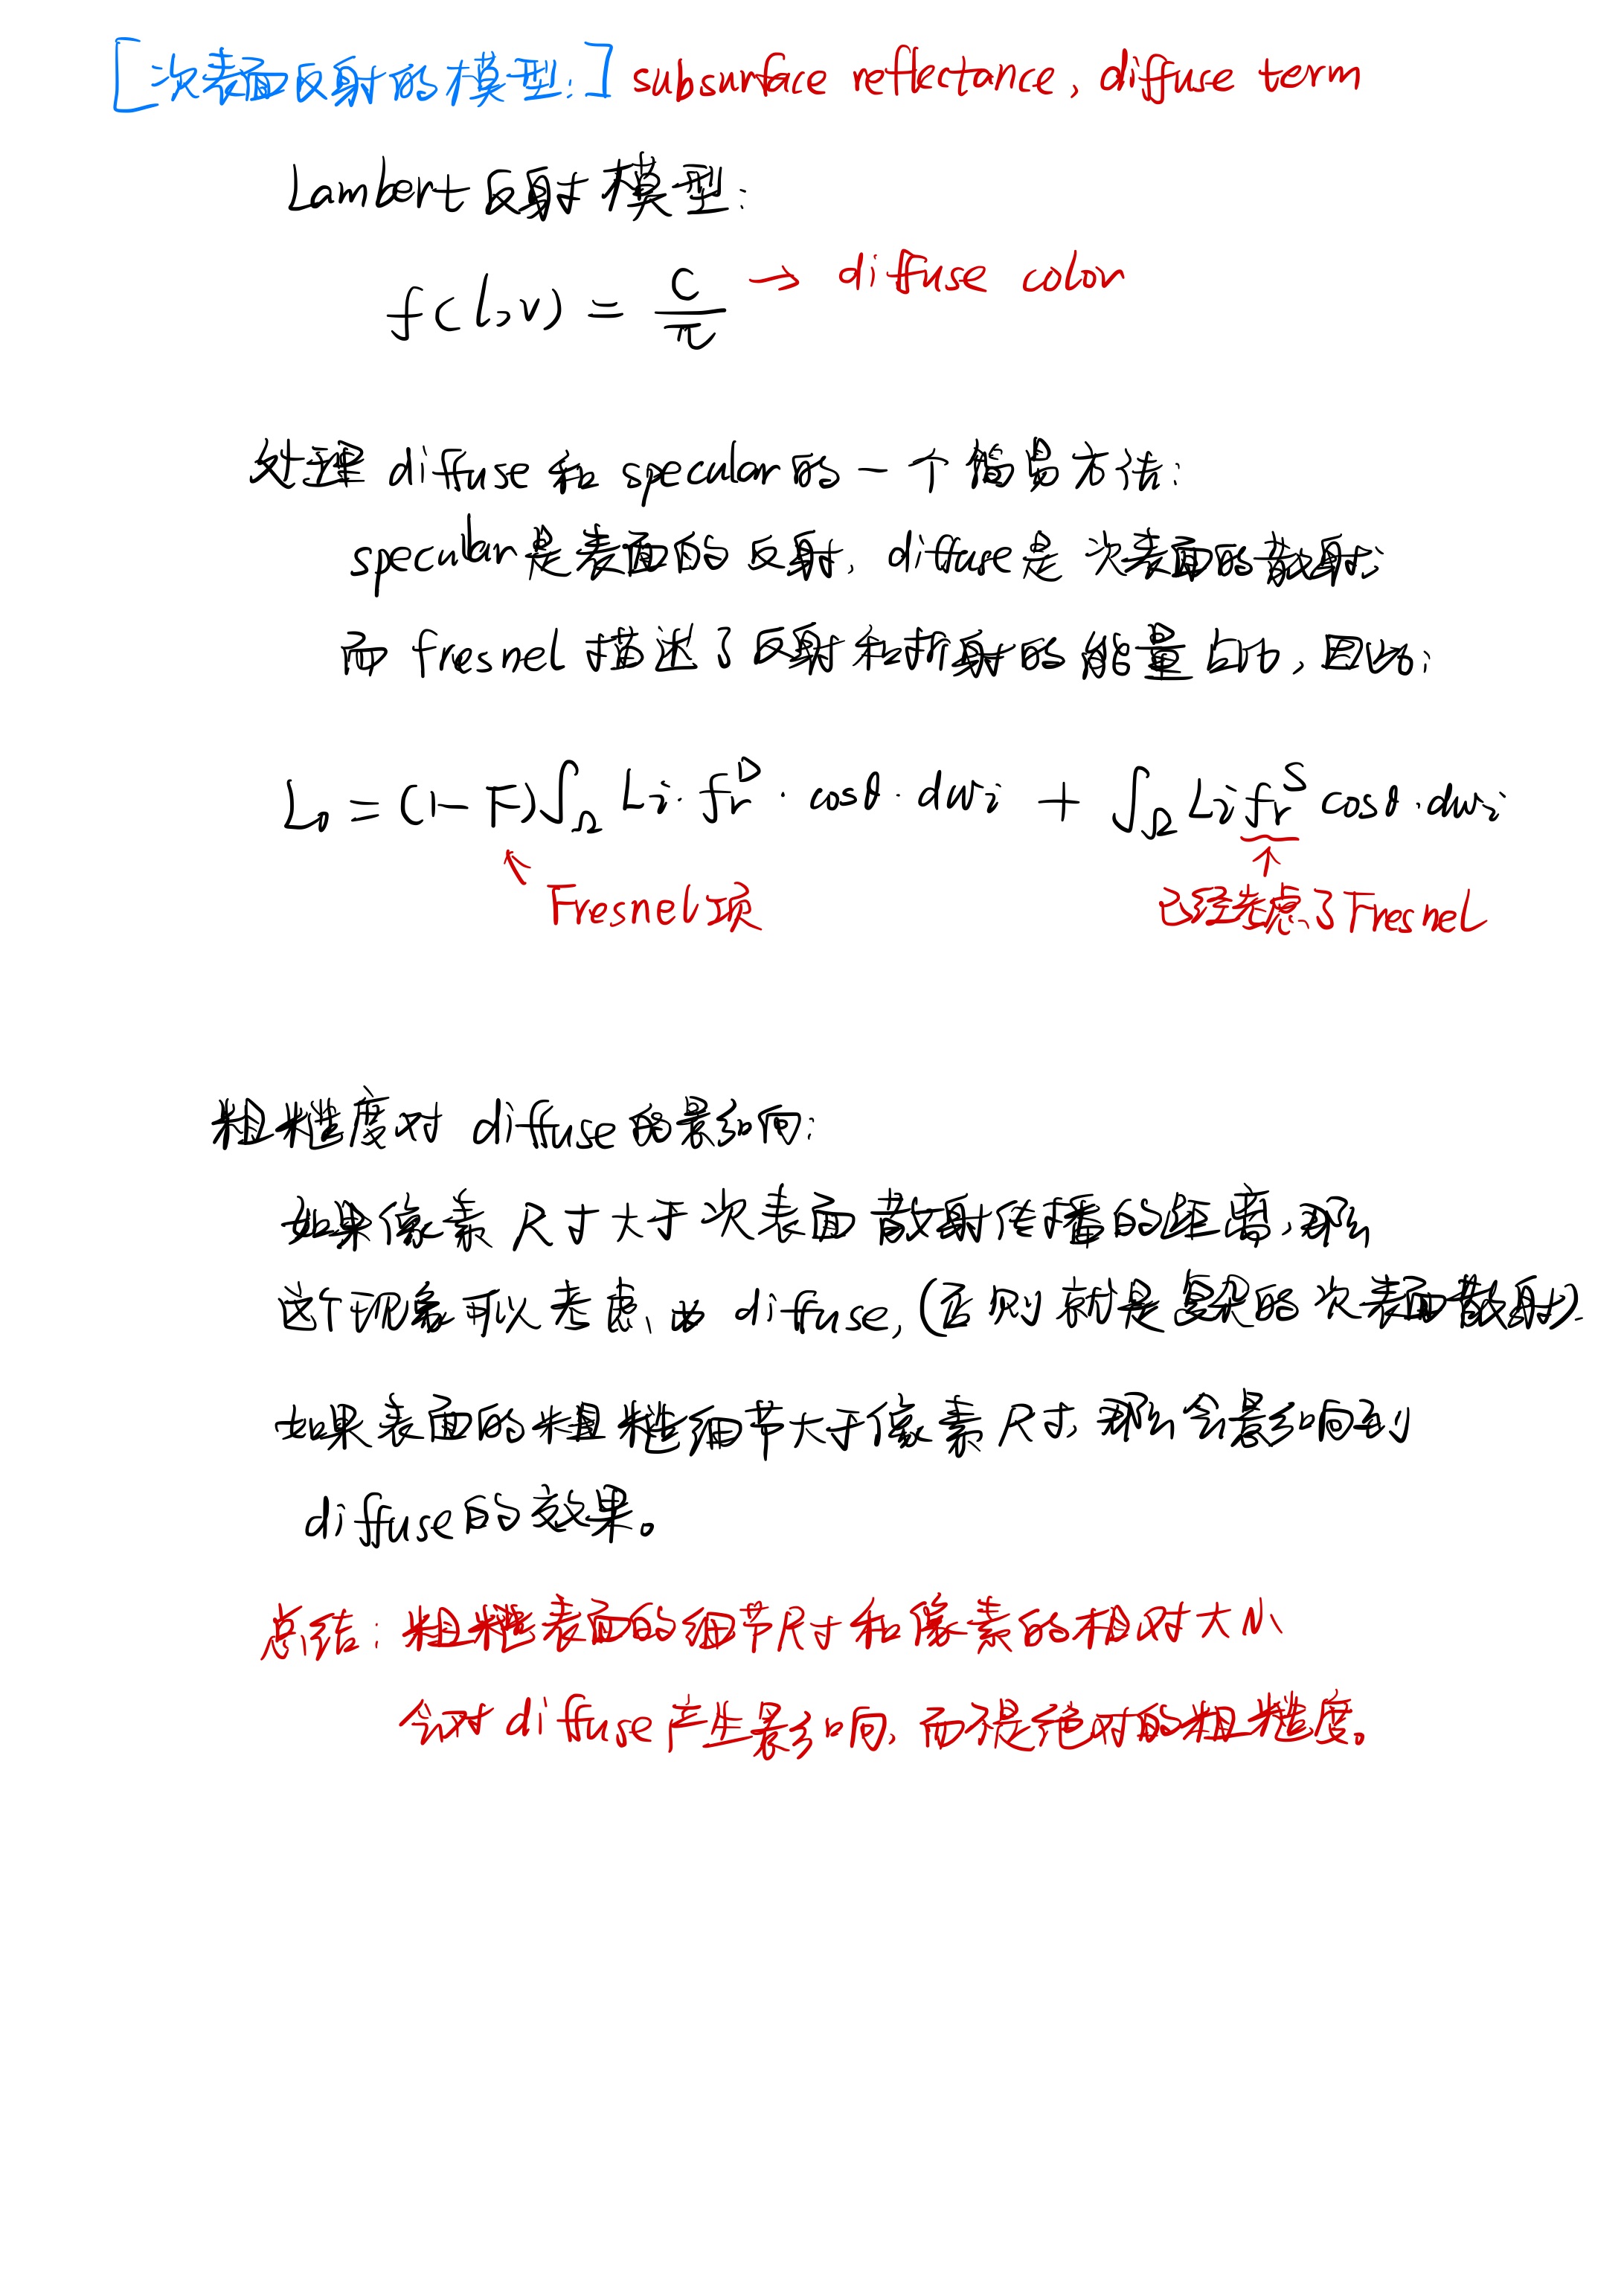 [次表面反射的模型:] subsurface reflectance, diffuse term
Lambert反射模型:
f(l,v) = c/π → diffuse color
处理 diffuse 和 specular 的一个简易方法:
specular是表面的反射, diffuse是次表面的散射;
而 fresnel 描述了反射和折射的能量占比, 因此:
L₀ = (1-F)∫_Ω Li · fr^D · cosθ · dωi + ∫_Ω Li fr^S cosθ · dωi
↖ Fresnel项 ↑
已经考虑了Fresnel
粗糙度对 diffuse的影响:
如果像素尺寸大于次表面散射传播的距离,那么
这个现象可以考虑为 diffuse, (否则就是复杂的次表面散射).
如果表面的粗糙细节大于像素尺寸, 那么会影响到
diffuse的效果。
总结: 粗糙表面的细节尺寸和像素的相对大小
会对diffuse产生影响, 而不是绝对的粗糙度。